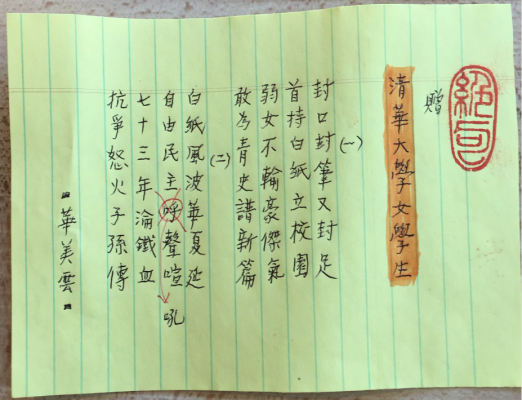 絕句
贈
清華大學女學生
(一)
封口封筆又封足
首持白紙立校園
弱女不輸豪傑氣
敢為青史譜新篇
(二)
白紙風波華夏延
自由民主呼聲喧
吼
七十三年淪鐵血
抗爭怒火子孫傳
華美雲